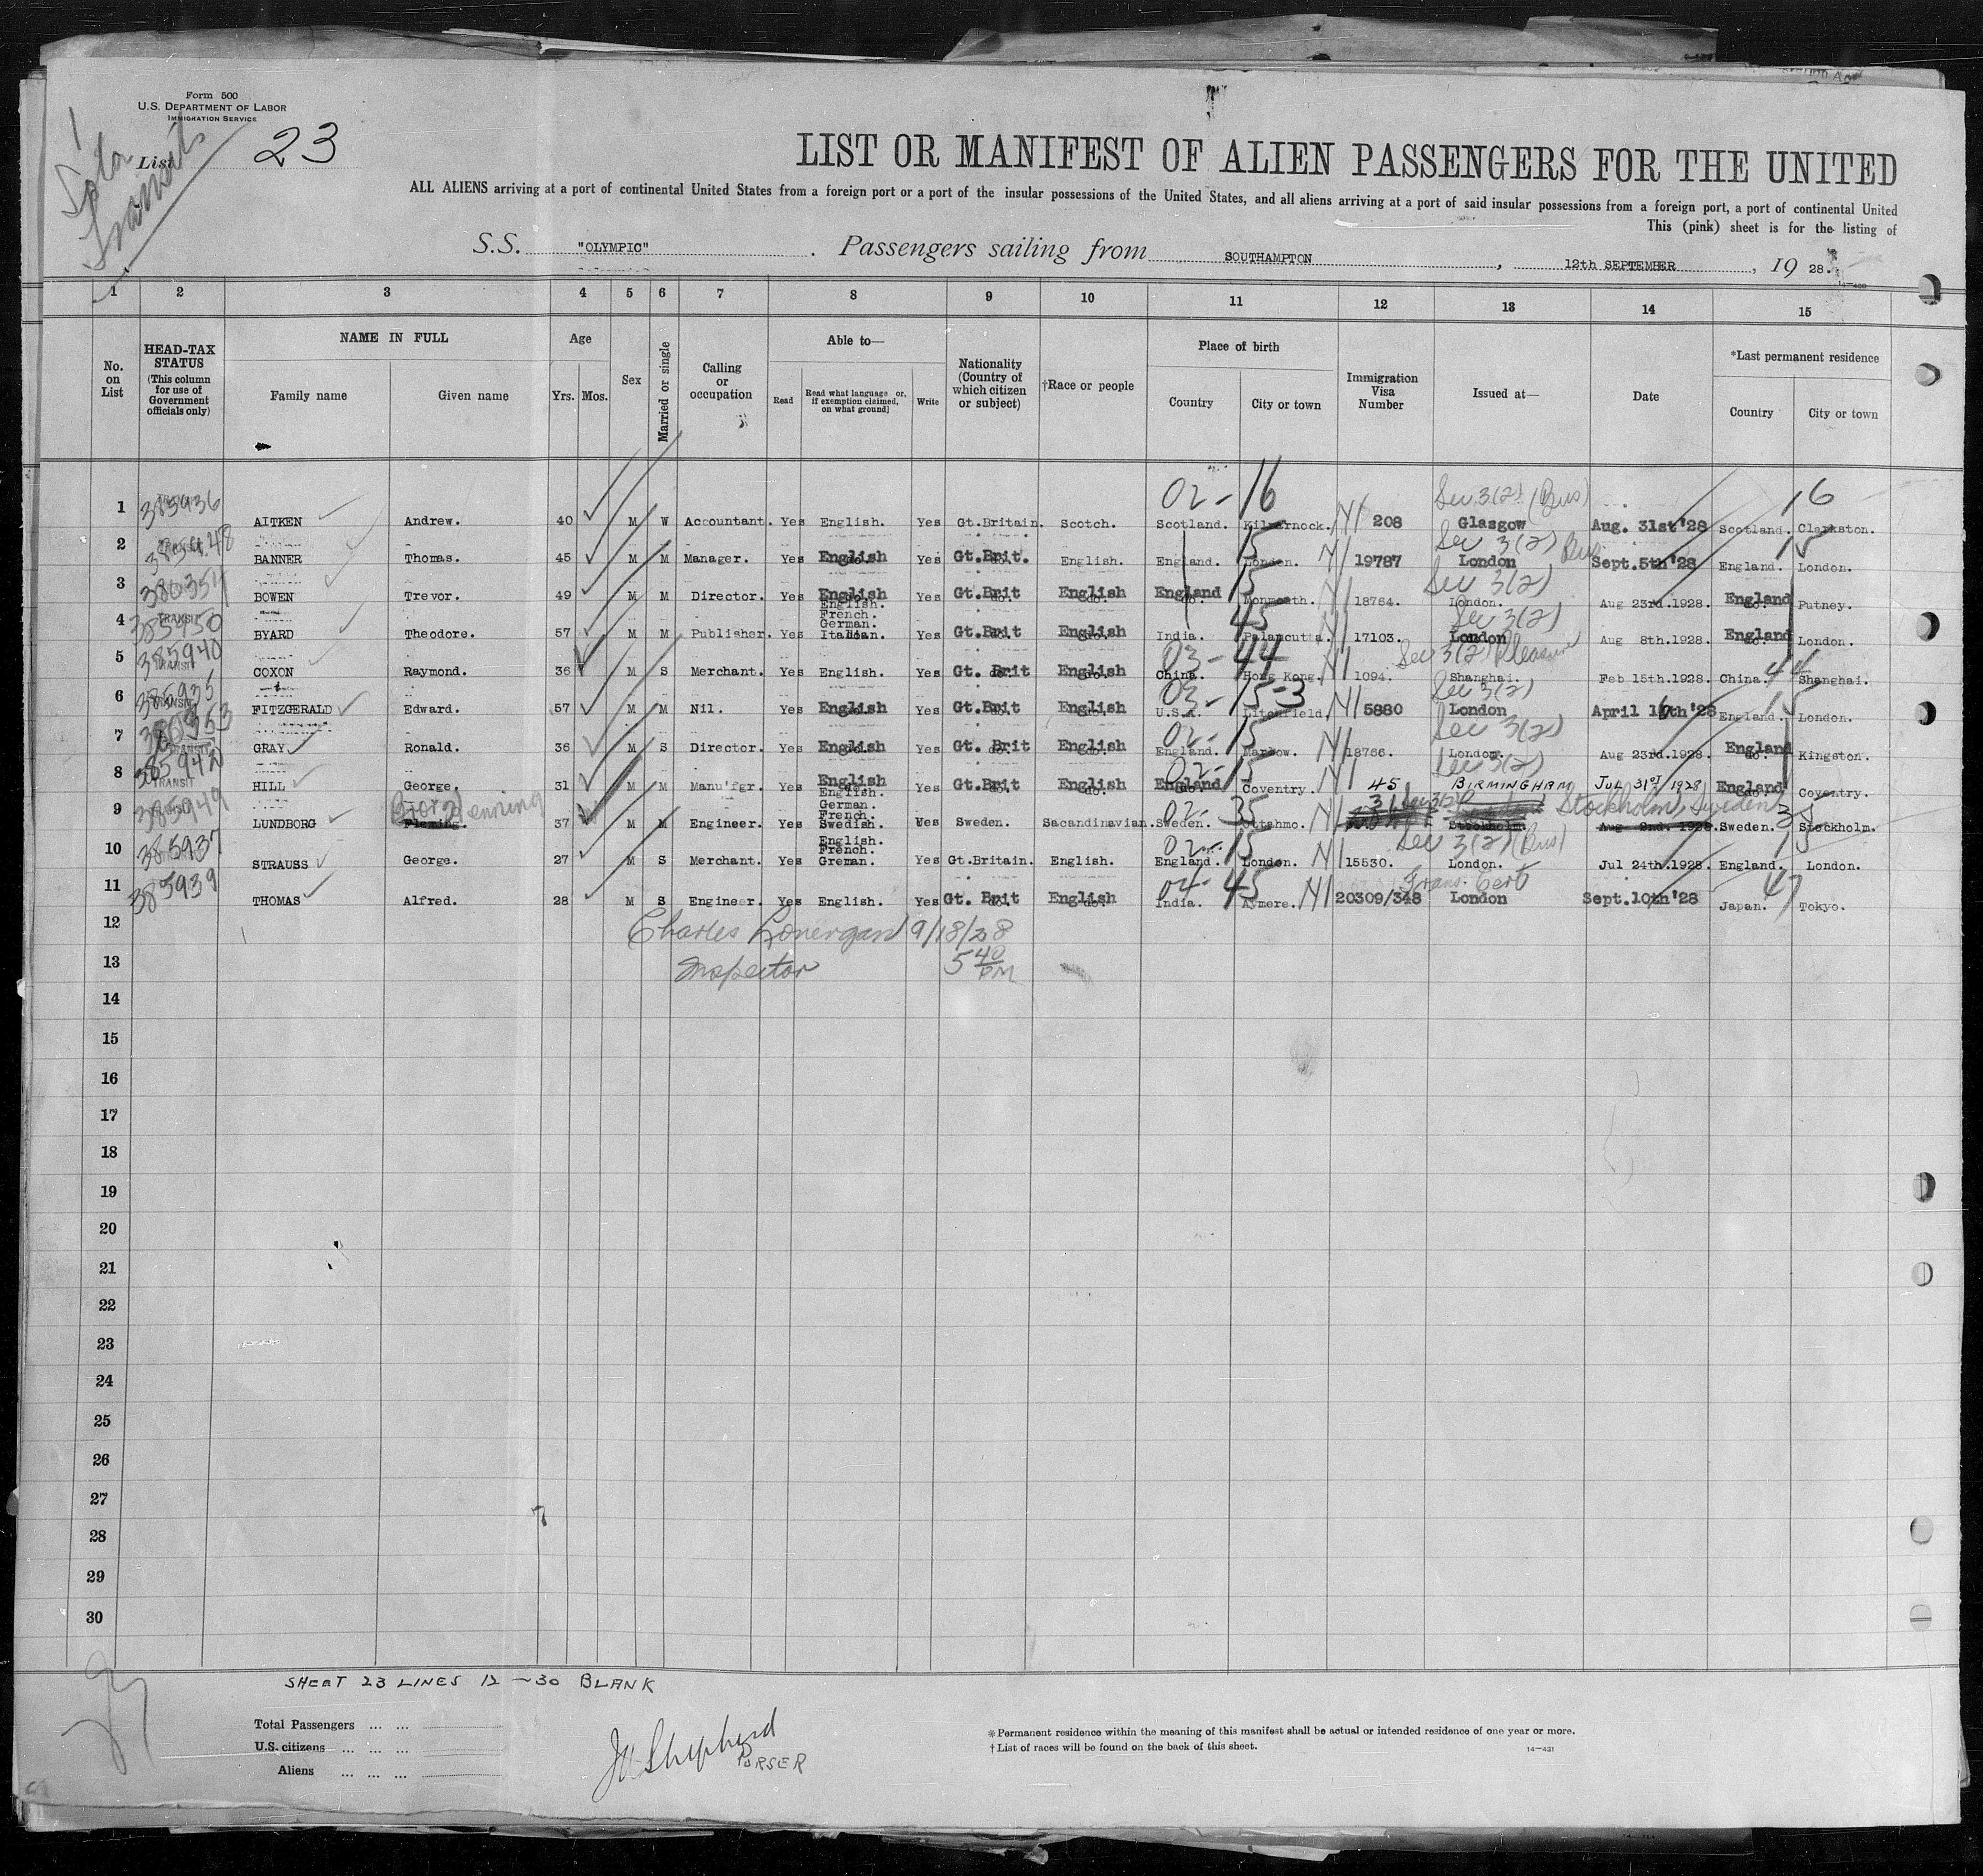 Form 500
U.S. DEPARTMENT OF LABOR
IMMIGRATION SERVICE
List 23
LIST OR MANIFEST OF ALIEN PASSENGERS FOR THE UNITED
ALL ALIENS arriving at a port of continental United States from a foreign port or a port of the insular possessions of the United States, and all aliens arriving at a port of said insular possessions from a foreign port, a port of continental United
This (pink) sheet is for the listing of
S.S. "OLYMPIC". Passengers sailing from SOUTHAMPTON, 12th SEPTEMBER, 19 28.
1 2 3 4 5 6 7 8 9 10 11 12 13 14 15
No. on List
HEAD-TAX STATUS (This column for use of Government officials only)
NAME IN FULL
Family name Given name
Age
Yrs. Mos.
Sex
Married or single
Calling or occupation
Able to—
Read Read what language or, if exemption claimed, on what ground] Write
Nationality (Country of which citizen or subject)
†Race or people
Place of birth
Country City or town
Immigration Visa Number
Issued at—
Date
*Last permanent residence
Country City or town
02-16 Sec 3(2) (Bus) 16
1 385936 AITKEN Andrew. 40 M W Accountant. Yes English. Yes Gt.Britain. Scotch. Scotland. Kilmarnock. 208 Glasgow Aug. 31st'28 Scotland. Clarkston.
15 Sec 3(2) Bus 15
2 BANNER Thomas. 45 M M Manager. Yes English Yes Gt.Brit. English. England. London. 19787 London Sept.5th'28 England. London.
15 Sec 3(2)
3 BOWEN Trevor. 49 M M Director. Yes English Yes Gt.Brit English England Monmouth. 18764. London. Aug 23rd.1928. England Putney.
45 Sec 3(2)
4 385950 TRANSIT BYARD Theodore. 57 M M Publisher. Yes English. French. German. Italian. Yes Gt.Brit English India. Palamcutta. 17103. London Aug 8th.1928. England London.
03-44 Sec 3(2) Pleasure 44
5 385940 TRANSIT COXON Raymond. 36 M S Merchant. Yes English. Yes Gt. Brit English China. Hong Kong. 1094. Shanghai. Feb 15th.1928. China. Shanghai.
03-15-3 Sec 3(2) 15
6 385935 TRANSIT FITZGERALD Edward. 57 M M Nil. Yes English Yes Gt.Brit English U.S.A. Litchfield. 5880 London April 16th'28 England. London.
02-15 Sec 3(2)
7 TRANSIT GRAY Ronald. 36 M S Director. Yes English Yes Gt. Brit English England. Marlow. 18766. London. Aug 23rd.1928. England Kingston.
02-15 Sec 3(2)
8 385942 TRANSIT HILL George. 31 M M Manu'fgr. Yes English Yes Gt.Brit English England Coventry. 45 BIRMINGHAM JUL 31ST 1928 England Coventry.
02-35 31 Stockholm, Sweden 35
9 385949 LUNDBORG Fleming. 37 M M Engineer. Yes English. German. French. Swedish. Yes Sweden. Sacandinavian. Sweden. Stockholm. Aug 2nd. 1928. Sweden. Stockholm.
02-15 Sec 3(2) (Bus) 15
10 385937 STRAUSS George. 27 M S Merchant. Yes English. French. Greman. Yes Gt.Britain. English. England. London. 15530. London. Jul 24th.1928. England. London.
04-45 Trans. Cert 47
11 385939 THOMAS Alfred. 28 M S Engineer. Yes English. Yes Gt. Brit English India. Aymere. 20309/348 London Sept.10th'28 Japan. Tokyo.
12 Charles Lonergan 9/18/28
13 Inspector 5 40 PM
14
15
16
17
18
19
20
21
22
23
24
25
26
27
28
29
30
SHEET 23 LINES 12 — 30 BLANK
Total Passengers ... ...
U.S. citizens ... ... ...
Aliens ... ... ...
Shepherd
PURSER
* Permanent residence within the meaning of this manifest shall be actual or intended residence of one year or more.
† List of races will be found on the back of this sheet.
14—431